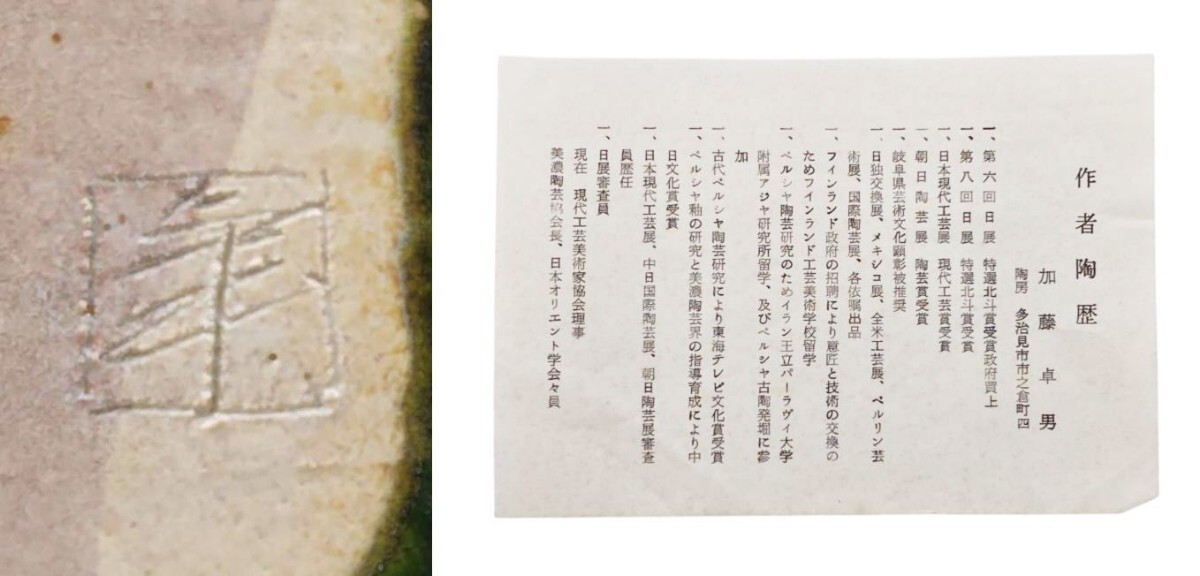 作者陶歴
加藤卓男
陶房　多治見市市之倉町四
一、第六回日展　特選北斗賞受賞政府買上
一、第八回日展　特選北斗賞受賞
一、日本現代工芸展　現代工芸賞受賞
一、朝日陶芸展　陶芸賞受賞
一、岐阜県芸術文化顕彰被推奨
一、日独交換展、メキシコ展、全米工芸展、ベルリン芸
術展、国際陶芸展、各依嘱出品
一、フィンランド政府の招聘により意匠と技術の交換の
ためフィンランド工芸美術学校留学
一、ペルシャ陶芸研究のためイラン王立パーラヴィ大学
附属アジャ研究所留学、及びペルシャ古陶発堀に参
加
一、古代ペルシャ陶芸研究により東海テレビ文化賞受賞
一、ペルシャ釉の研究と美濃陶芸界の指導育成により中
日文化賞受賞
一、日本現代工芸展、中日国際陶芸展、朝日陶芸展審査
員歴任
一、日展審査員
現在　現代工芸美術家協会理事
美濃陶芸協会長、日本オリエント学会々員